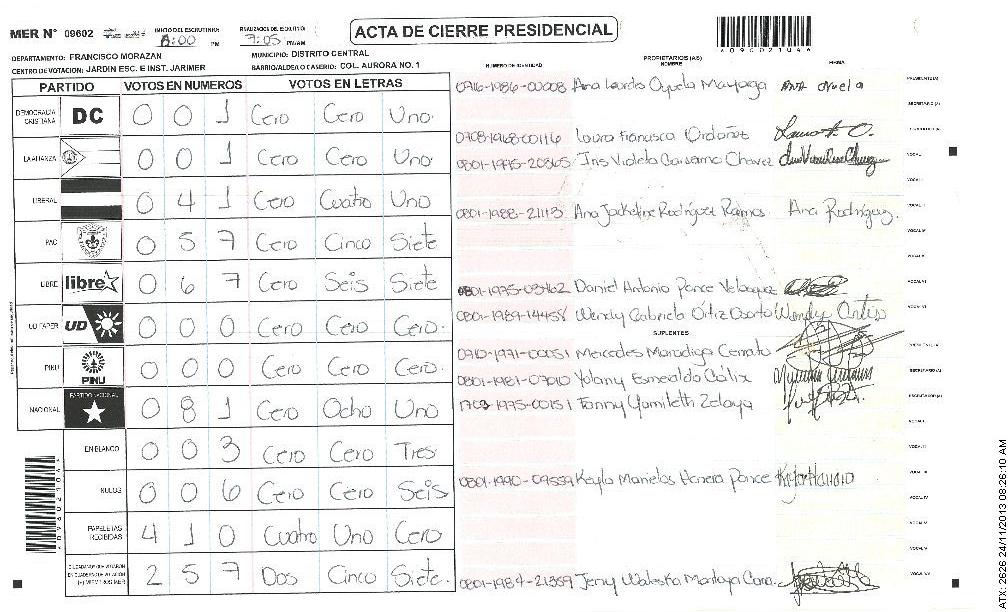 MER N° 09602 INICIO DEL ESCRUTINIO: 8:00 PM FINALIZACION DEL ESCRUTINIO: 7:05 PM/AM
ACTA DE CIERRE PRESIDENCIAL
DEPARTAMENTO: FRANCISCO MORAZAN MUNICIPIO: DISTRITO CENTRAL
CENTRO DE VOTACION: JARDIN ESC. E INST. JARIMER BARRIO/ALDEA O CASERIO: COL. AURORA NO. 1
NUMERO DE IDENTIDAD PROPIETARIOS (AS) NOMBRE FIRMA
PARTIDO VOTOS EN NUMEROS VOTOS EN LETRAS
DEMOCRACIA CRISTIANA DC 0 0 1 Cero Cero Uno.
LA ALIANZA 0 0 1 Cero Cero Uno.
LIBERAL 0 4 1 Cero Cuatro Uno
PAC 0 5 7 Cero Cinco Siete
LIBRE libre 0 6 7 Cero Seis Siete
UD FAPER UD 0 0 0 Cero Cero Cero.
PINU PINU 0 0 0 Cero Cero Cero.
NACIONAL PARTIDO NACIONAL 0 8 1 Cero Ocho Uno
EN BLANCO 0 0 3 Cero Cero Tres
NULOS 0 0 6 Cero Cero Seis
PAPELETAS RECIBIDAS 4 1 0 Cuatro Uno Cero
CIUDADANOS QUE VOTARON EN CUADERNO DE VOTACION (+) MIEMBROS MER 2 5 7 Dos Cinco Siete.
Ana Lourdes Oyuela Mayorga Ana Oyuela PRESIDENTE(A)
SECRETARIO (A)
0708-1968-00116 Laura Francisca Ordoñez
Iris Violeta Carcamo Chavez VOCAL I
0801-1988-21113 Ana Jackeline Rodríguez Ramos. Ana Rodríguez.
Daniel Antonio Ponce Velasquez
0801-1989-14458 Wendy Gabriela Ortiz Osorto Wendy Ortiz
SUPLENTES
Mercedes Maradiga Cerrato
0801-1981-07010 Yolany Esmeralda Cálix
1703-1975-00151 Fanny Yamileth Zelaya
0801-1990-09559 Keyla Marielos Herrera Ponce
0801-1984-21359 Jenny Waleska Montoya
ATX 2626 24/11/2013 08:26:10 AM